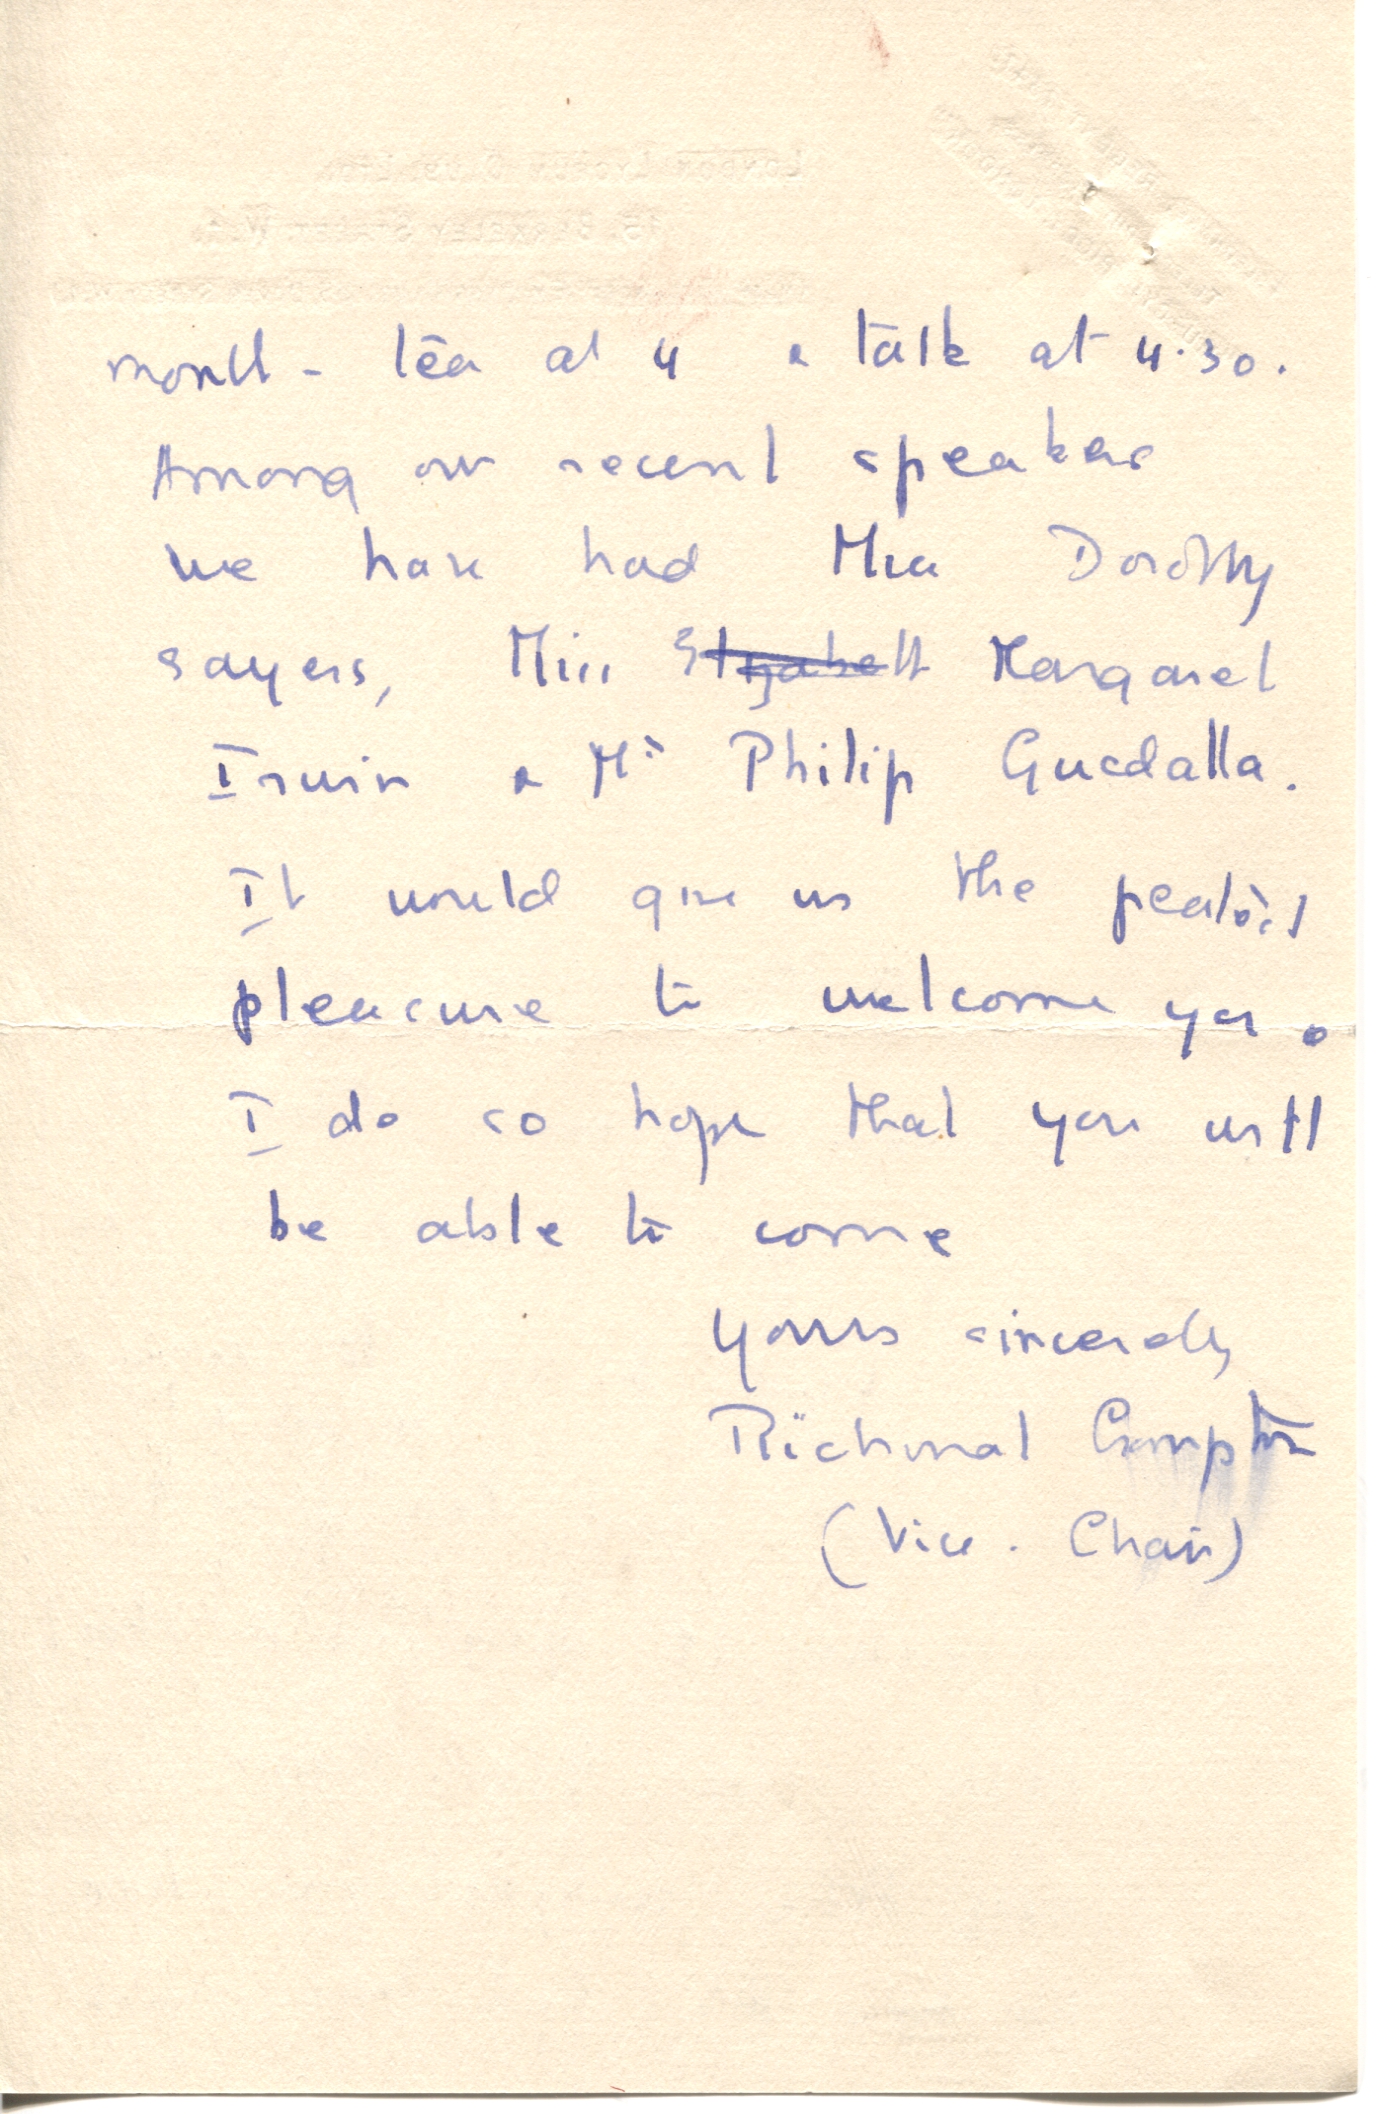 month - tea at 4 & talk at 4.30.
Among our recent speakers
we have had Miss Dorothy
Sayers, Miss Elizabeth Margaret
Irwin & Mr Philip Guedalla.
It would give us the greatest
pleasure to welcome you.
I do so hope that you will
be able to come
Yours sincerely
Richmal Crompton
(Vice. Chair)